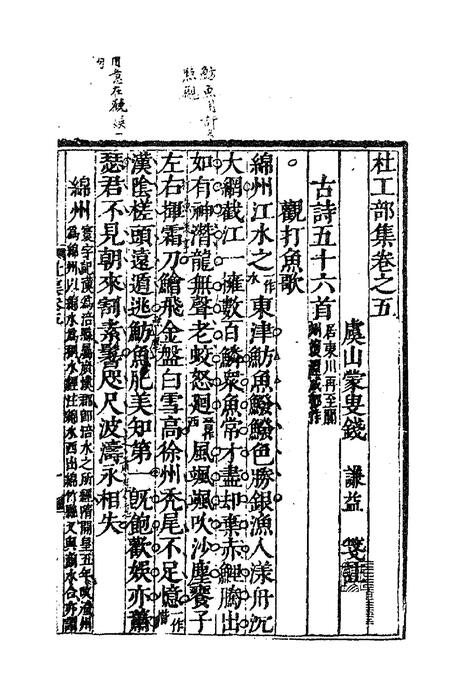 杜工部集卷之五
虞山蒙叟錢 謙益 箋註
古詩五十六首 居東川再至閬
州復還成都作
觀打魚歌
綿州江水之一作水東津魴魚鱍鱍色勝銀漁人漾舟沉
大網截江一擁數百鱗衆魚常才盡却棄赤鯉騰出
如有神潛龍無聲老蛟怒廻風颯颯吹沙塵饔子
左右揮霜刀鱠飛金盤白雪高徐州禿尾不足憶一作惜
漢陰槎頭遠遁逃魴魚肥美知第一旣飽歡娛亦蕭
瑟君不見朝來割素鬐咫尺波濤永相失
綿州 寰宇記漢爲涪縣屬廣漢郡卽涪水之所經隋開皇五年改潼州
爲綿州以綿水爲名水經注綿水西出綿竹縣又與湔水合亦謂